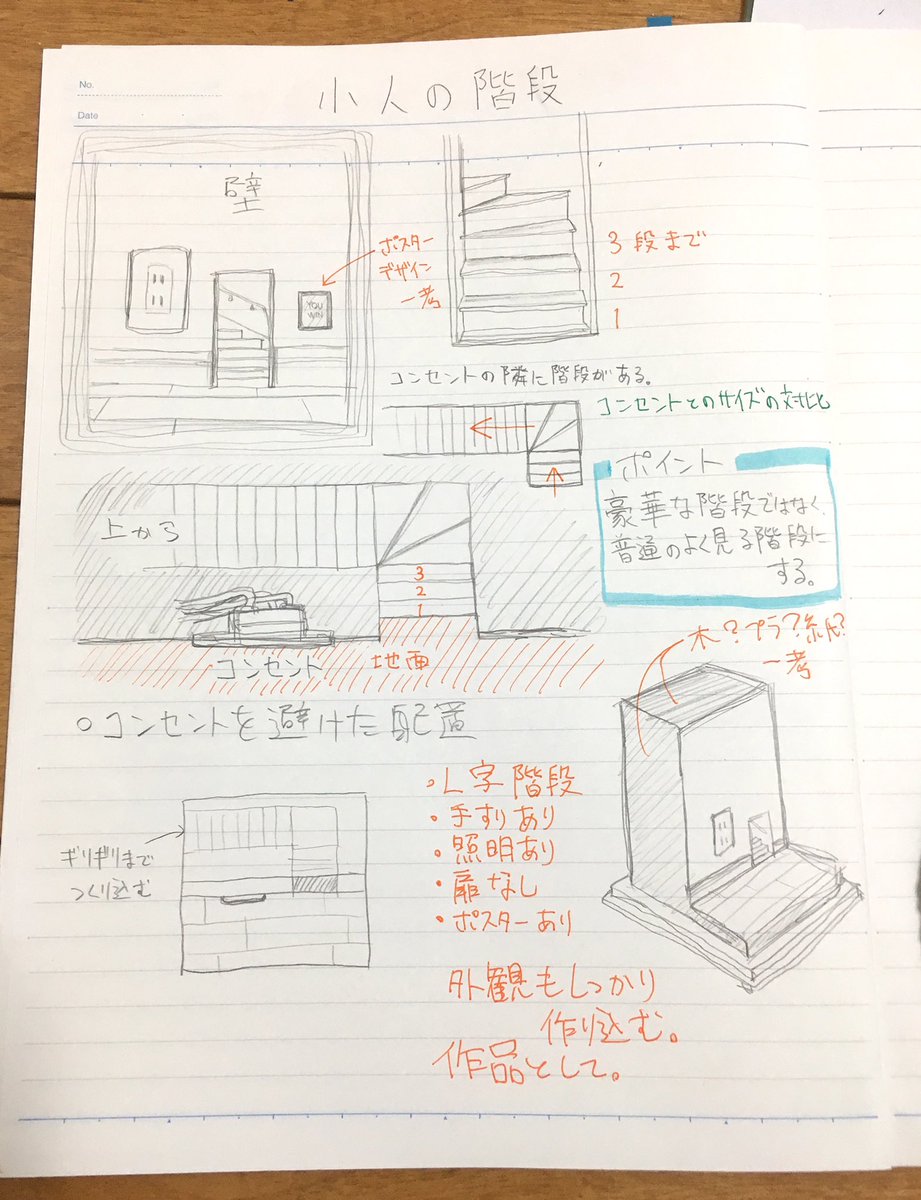 No.
Date
小人の階段
壁
ポスター
デザイン
一考
YOU
WIN
3段まで
2
1
コンセントの隣に階段がある。
コンセントとのサイズの対比
ポイント
豪華な階段ではなく、
普通のよく見る階段に
する。
上から
3
2
1
コンセント
地面
木?プラ?紙?
一考
○コンセントを避けた配置
ギリギリまで
つくり込む
・L字階段
・手すりあり
・照明あり
・扉なし
・ポスターあり
外観もしっかり
作り込む。
作品として。